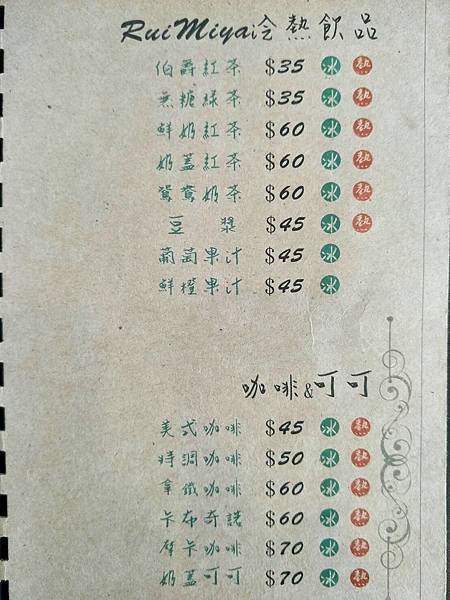 RuiMiya冷熱飲品
伯爵紅茶 $35 冰 熱
無糖綠茶 $35 冰 熱
鮮奶紅茶 $60 冰 熱
奶蓋紅茶 $60 冰 熱
鴛鴦奶茶 $60 冰 熱
豆漿 $45 冰 熱
葡萄果汁 $45 冰
鮮橙果汁 $45 冰
咖啡&可可
美式咖啡 $45 冰 熱
特調咖啡 $50 冰 熱
拿鐵咖啡 $60 冰 熱
卡布奇諾 $60 冰 熱
摩卡咖啡 $70 冰 熱
奶蓋可可 $70 冰 熱